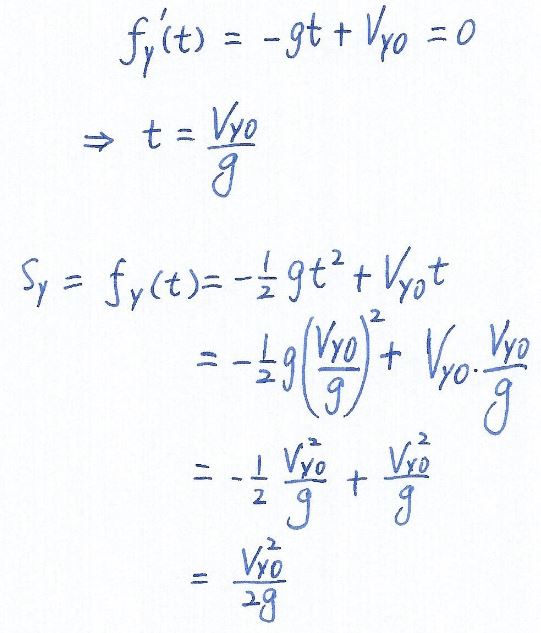 f_y'(t) = -gt + V_{y0} = 0
⇒ t = \frac{V_{y0}}{g}
S_y = f_y(t) = -\frac{1}{2} gt^2 + V_{y0}t
= -\frac{1}{2} g \left(\frac{V_{y0}}{g}\right)^2 + V_{y0} \cdot \frac{V_{y0}}{g}
= -\frac{1}{2} \frac{V_{y0}^2}{g} + \frac{V_{y0}^2}{g}
= \frac{V_{y0}^2}{2g}